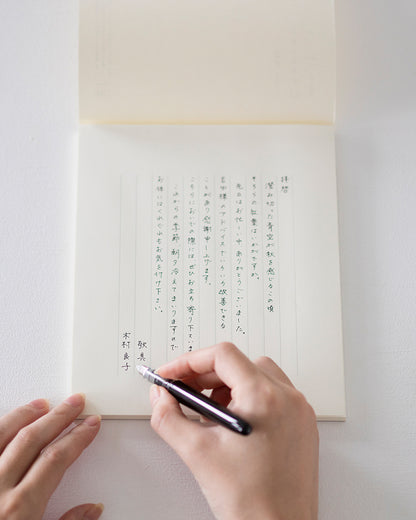 拝啓
澄み切った青空が秋を感じるこの頃
そちらの紅葉はいかがですか。
先日はお忙しい中ありがとうございました。
様のアドバイスでいろいろ改善できる
ことがあり感謝申し上げます。
こちらにおいでの際にはぜひお立ち寄り下さいま
これからの季節、朝夕冷えてまいりますので
お体にはくれぐれもお気を付け下さい。
敬具
木村良子